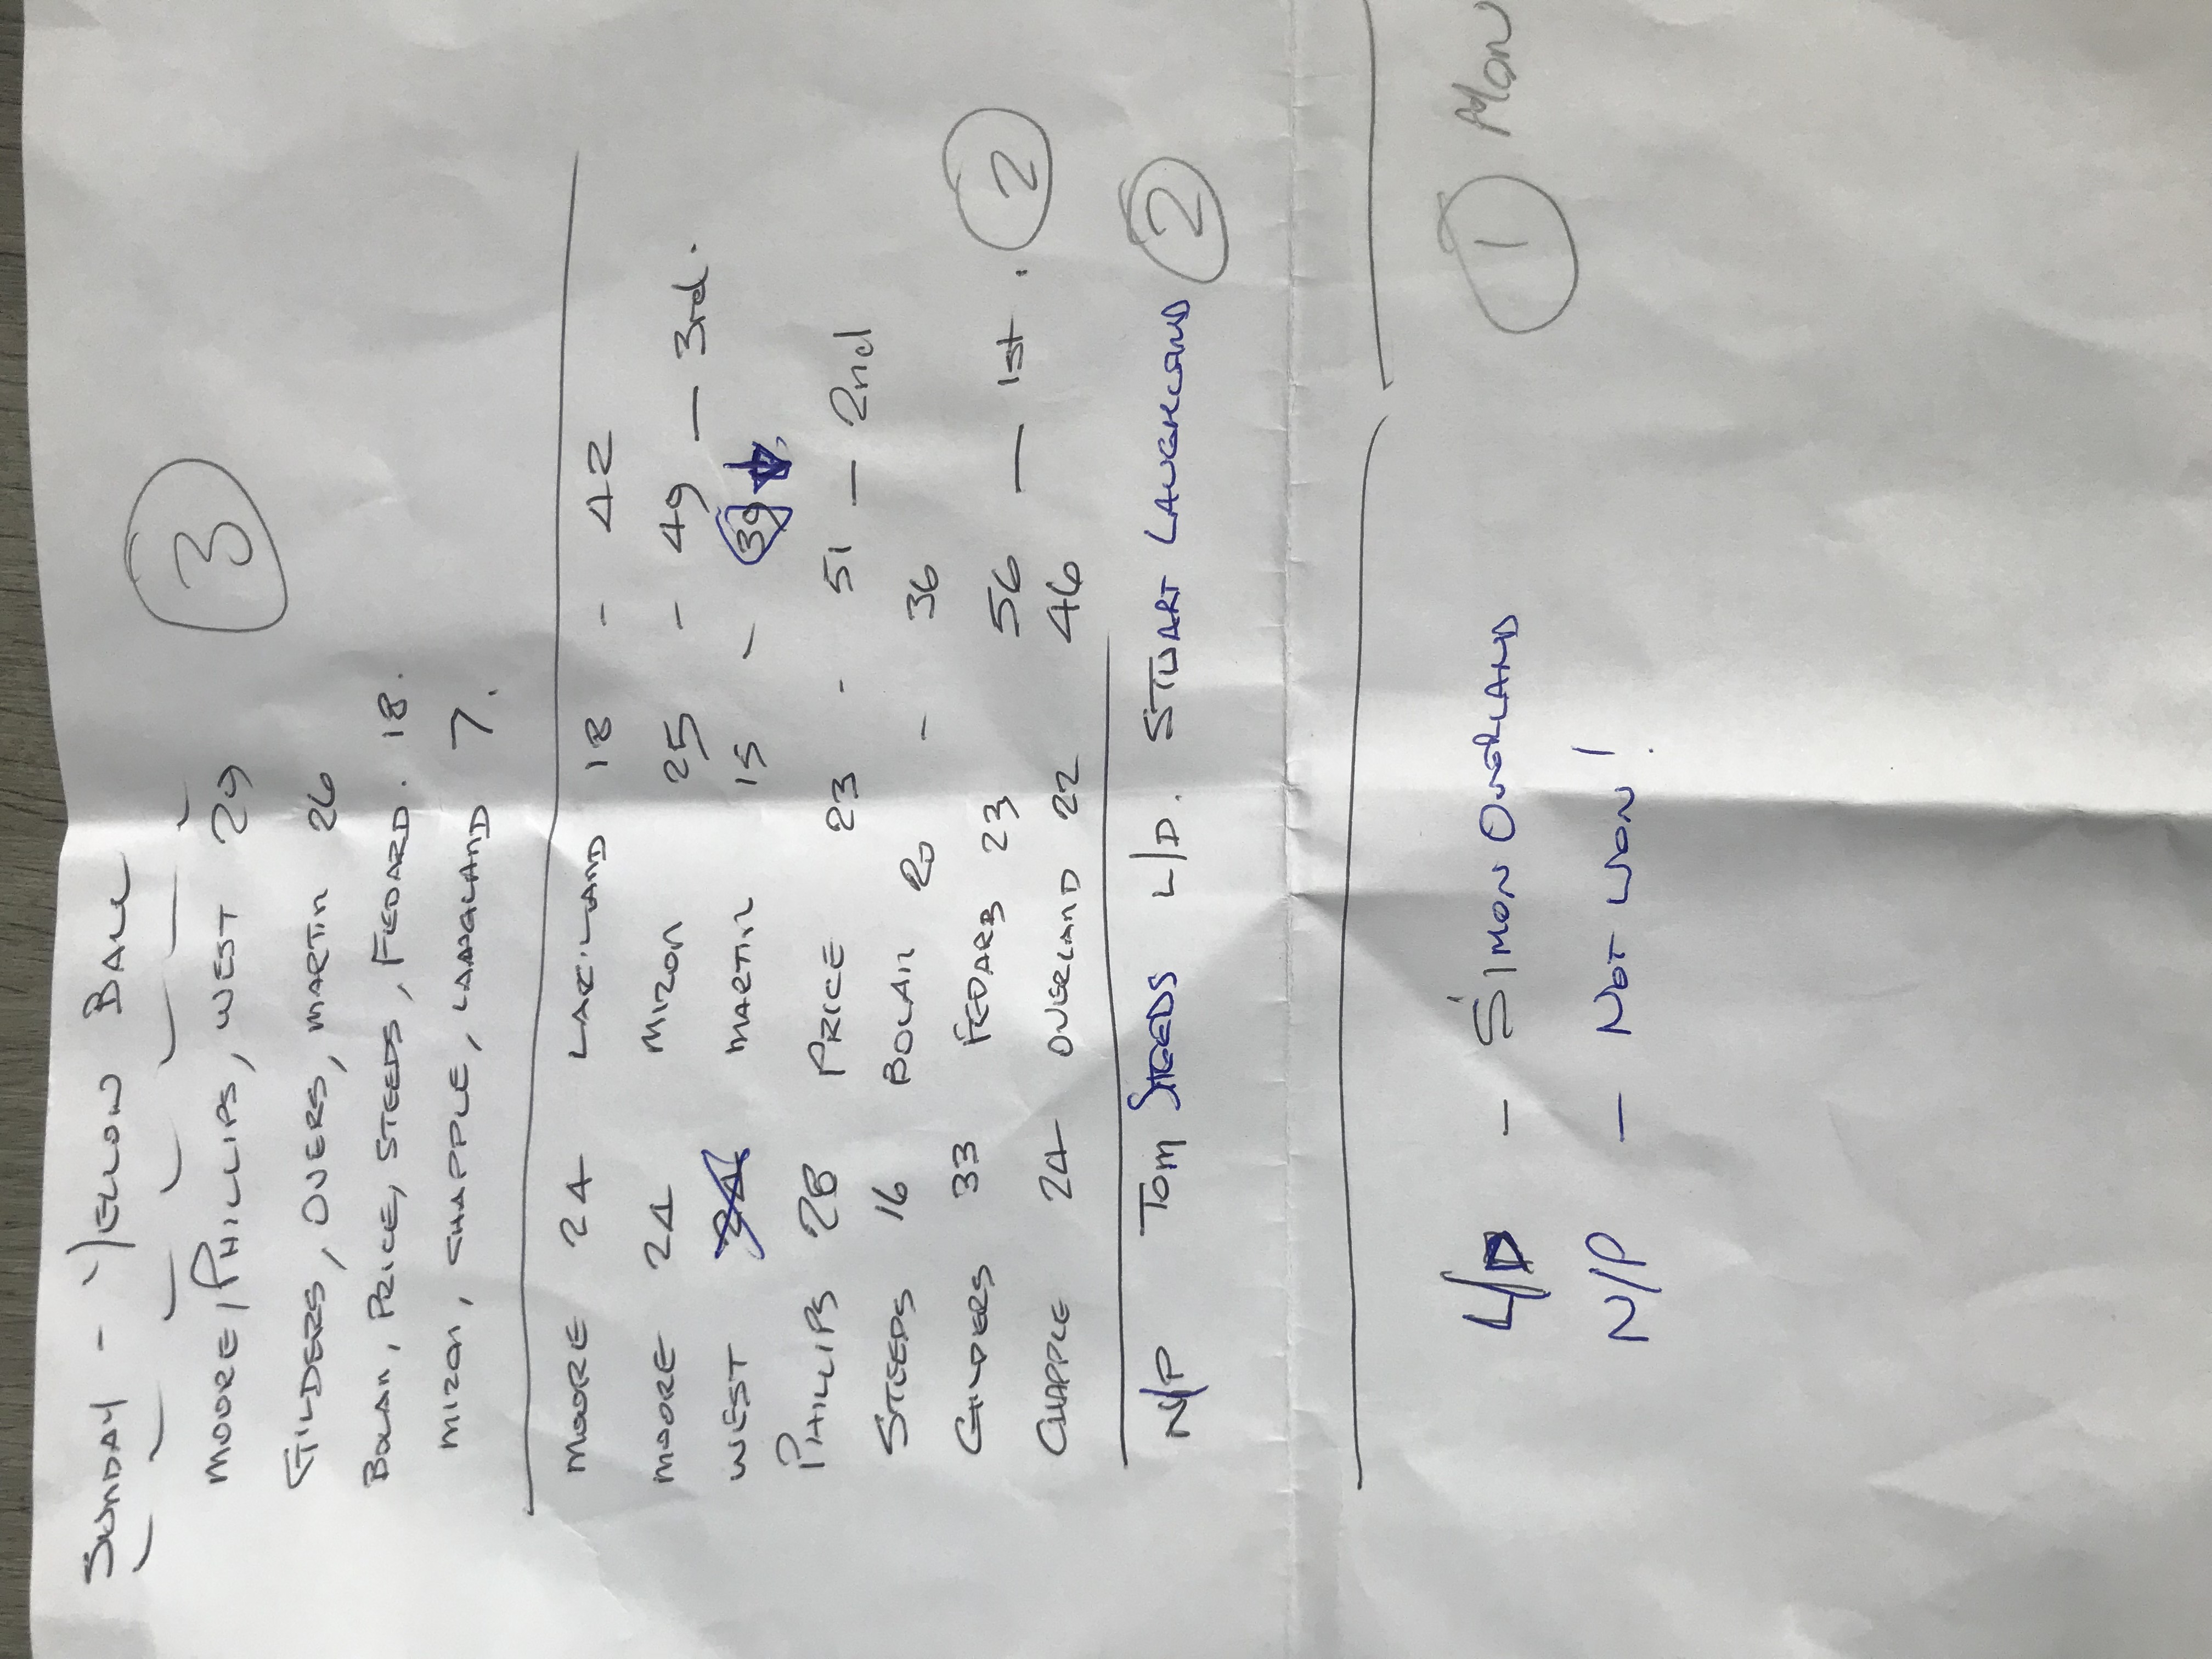 SUNDAY - YELLOW BALL
MOORE, PHILLIPS, WEST 29
GILDERS, OVERS, MARTIN 26 3
BOLAN, PRICE, STEEDS, FEDARD. 18.
MIZON, CHAPPLE, 7.
MOORE 24 18 - 42
MOORE 24 MIZON 25 - 49 — 3rd.
WEST MARTIN 15 - 39
PHILLIPS 28 PRICE 23 - 51 — 2nd
STEEDS 16 BOLAN 20 - 36
GILDERS 33 FEDARB 23 56 — 1st. 2
CHAPPLE 24 OVERLAND 22 46
N/P TOM STEEDS L/D. STUART LAUGHLAND 2
1 Mon
L/D - SIMON OVERLAND
N/P - NOT WON!